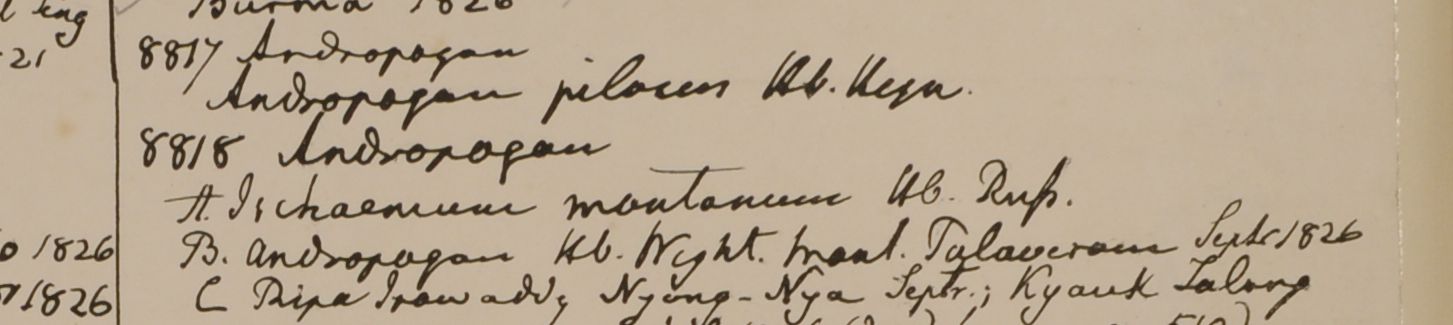 l King
Burma 1826
21
8817 Andropogon
Andropogon pilosus Hb. Heyn.
8818 Andropogon
A. Ischaemum montanum Hb. Ruß.
o 1826
B. Andropogon Hb. Wight. mont. Talaveram Septr 1826
1826
C Ripa Irawaddy Nyong-Nya Septr.; Kyauk Talong